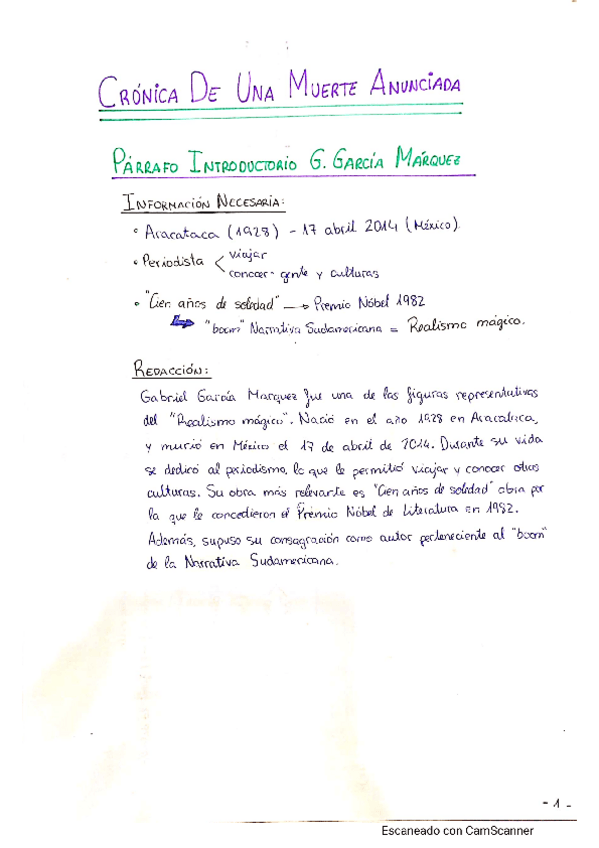 CRÓNICA DE UNA MUERTE ANUNCIADA
PÁRRAFO INTRODUCTORIO G. GARCÍA MÁRQUEZ
INFORMACIÓN NECESARIA:
• Aracataca (1928) - 17 abril 2014 (México).
• Periodista < viajar
conocer - gente y culturas
• "Cien años de soledad" → Premio Nóbel 1982
"boom" Narrativa Sudamericana = Realismo mágico.
REDACCIÓN:
Gabriel García Marquez fue una de las figuras representativas
del "Realismo mágico". Nació en el año 1928 en Aracataca,
y murió en México el 17 de abril de 2014. Durante su vida
se dedicó al periodismo, lo que le permitió viajar y conocer otras
culturas. Su obra más relevante es "Cien años de soledad" obra por
la que le concedieron el Premio Nóbel de Literatura en 1982.
Además, supuso su consagración como autor perteneciente al "boom"
de la Narrativa Sudamericana.
- 1 -
Escaneado con CamScanner